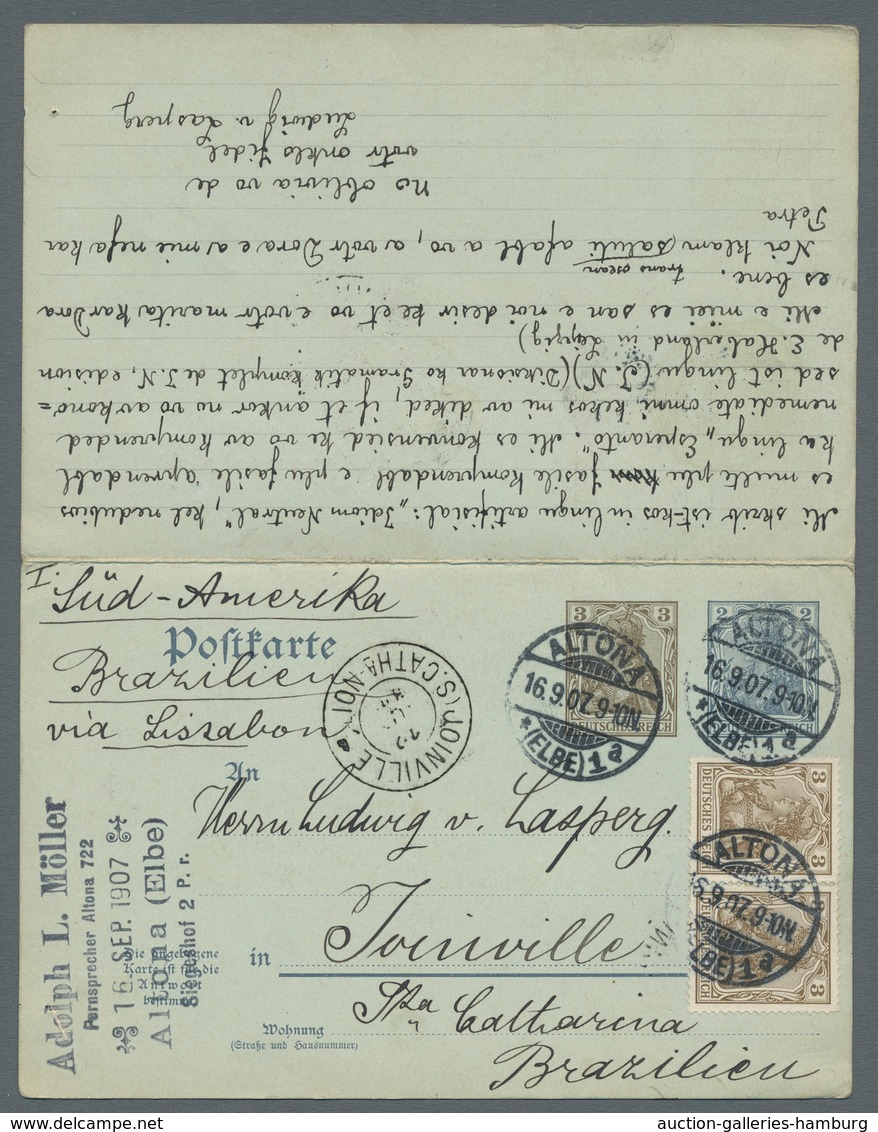 Mi skrib ist-kos in lingu artifisial: „Idiom Neutral", kel nedubios
es multe plu fasile komprendabl e plu fasile aprendabl
ka lingu „Esperanto". Mi es konvensied ke vo av komprended
nemediate omni, kekos mi av diked, if et ankor no vo av kono=
sed ist lingu (I. N) (Diksionar ko Gramatik komplet de I. N, edision
de E. Haberland in Leipzig)
Mi e miei es san e noi desir ke et vo e votr marita kar Dora
es bene.
trans osean
Noi klam (saluti afabl a vo, a votr Dora e a mie nefa kar
Petra
no oblivia vo de
votr onklo fidel
Ludwig v. Lasperg
I.
Süd-Amerika
Postkarte
Brazilien
via Lissabon
JOINVILLE
(S. CATHA-NOI)
3
DEUTSCHES REICH
2
REICH
ALTONA
16.9.07.9-10N.
*(ELBE)1a
ALTONA
16.9.07.9-10N.
*(ELBE)1a
An
Herrn Ludwig v. Lasperg.
in Joinville
Sta Catharina
Brazilien
Wohnung
(Straße und Hausnummer)
Die angebogene
Karte ist für die
Antwort
bestimmt
Adolph L. Möller
Fernsprecher Altona 722
16 SEP. 1907
Altona (Elbe)
Siegeshof 2 P. r.
3
DEUTSCHES REICH
3
DEUTSCHES REICH
ALTONA
16.9.07.9-10N.
(ELBE)1a
auction-galleries-hamburg